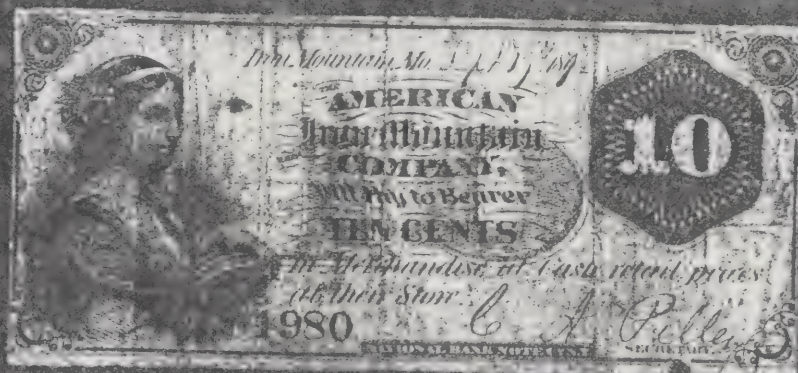 Iron Mountain, Mo. Sept 1, 189
AMERICAN
Iron Mountain
COMPANY,
Will Pay to Bearer
TEN CENTS
In Merchandise, at Cash retail prices
at their Store.
10
1980
C A
NATIONAL BANK NOTE CO. N.Y.
SECRETARY